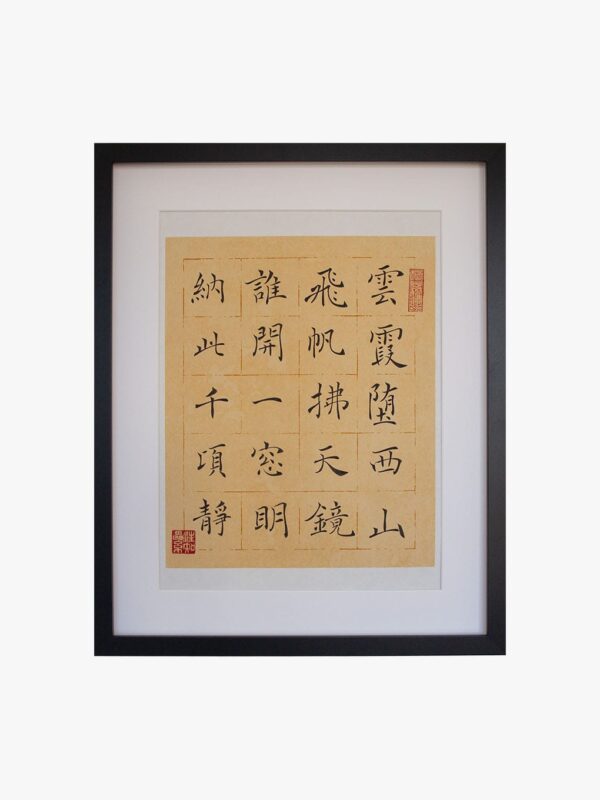 雲霞堕西山
飛帆拂天鏡
誰開一窓明
納此千項靜